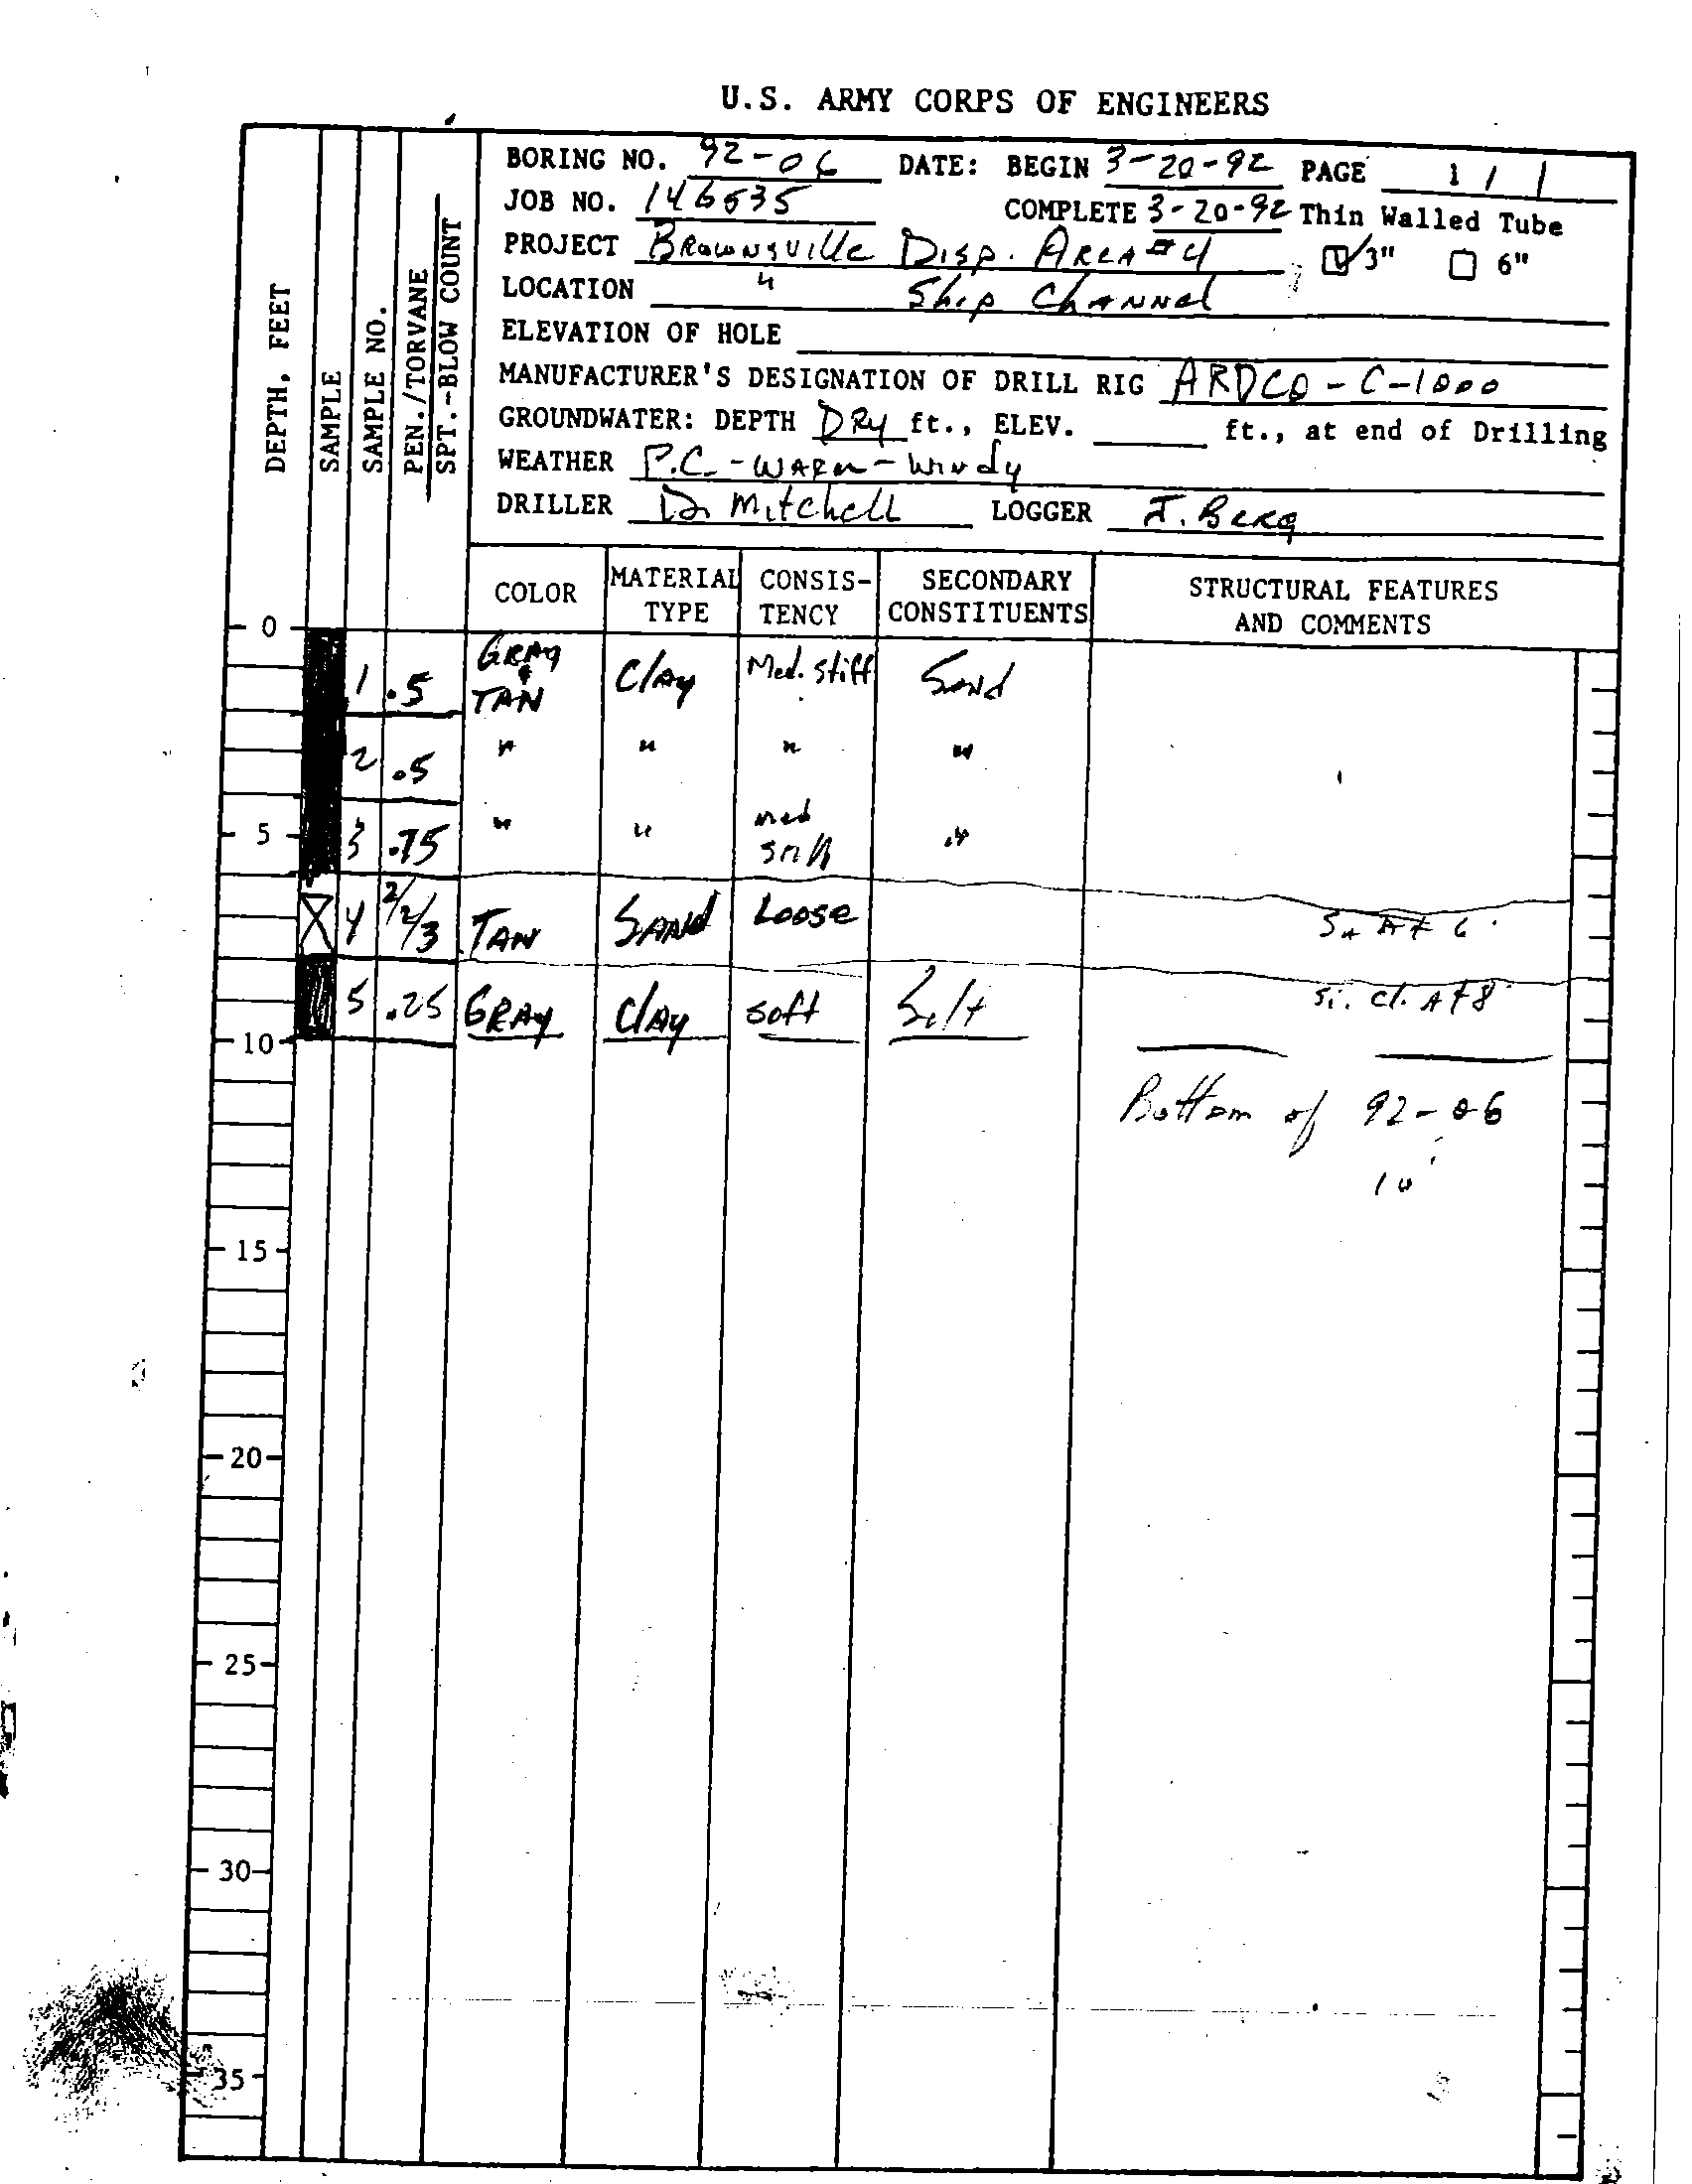 U.S. ARMY CORPS OF ENGINEERS
BORING NO. 92-06 DATE: BEGIN 3-20-92 PAGE 1 / 1
JOB NO. 146535 COMPLETE 3-20-92 Thin Walled Tube
PROJECT Brownsville Disp. Area #4 ☑ 3" ☐ 6"
LOCATION " Ship Channel
ELEVATION OF HOLE
MANUFACTURER'S DESIGNATION OF DRILL RIG ARDCO - C-1000
GROUNDWATER: DEPTH DRY ft., ELEV. ft., at end of Drilling
WEATHER P.C. - WARM - Windy
DRILLER D. Mitchell LOGGER J. Berg
DEPTH, FEET
SAMPLE
SAMPLE NO.
PEN./TORVANE
SPT.-BLOW COUNT
COLOR MATERIAL TYPE CONSIS-TENCY SECONDARY CONSTITUENTS STRUCTURAL FEATURES AND COMMENTS
0
1 .5 GRAY & TAN Clay Med. Stiff Sand
2 .5 " " " "
5 3 .75 " " med stiff "
4 2/2/3 TAN SAND Loose Sa At 6'
5 .25 GRAY Clay soft Silt Si. cl. At 8'
10
Bottom of 92-06
10'
15
20
25
30
35